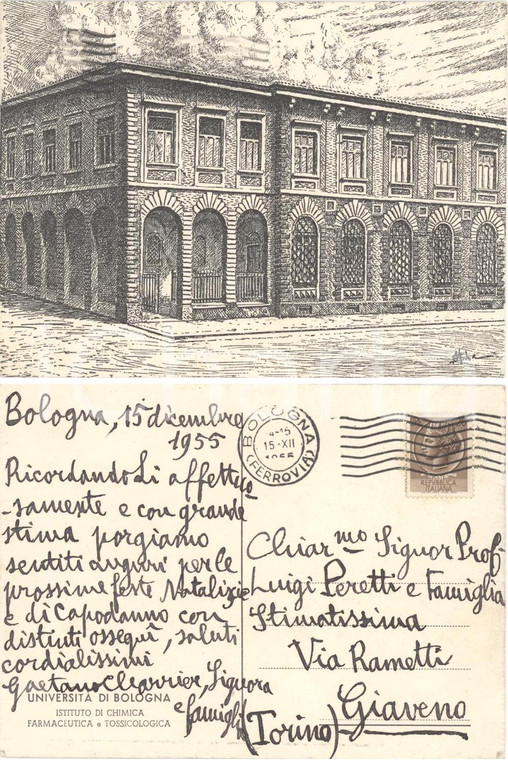 Bologna, 15 dicembre
1955
Ricordando Li affettuo
-samente e con grande
stima porgiamo
sentiti auguri per le
prossime feste Natalizie
e di Capodanno con
distinti ossequi, saluti
cordialissimi
Gaetano Charrier, Signora
e famiglia
UNIVERSITÀ DI BOLOGNA
ISTITUTO DI CHIMICA
FARMACEUTICA e TOSSICOLOGICA
BOLOGNA
15·XII
1955
(FERROVIA)
REPVBBLICA
ITALIANA
Chiar.mo Signor Prof.
Luigi Peretti e Famiglia
Stimatissima
Via Rametti
Giaveno
(Torino)